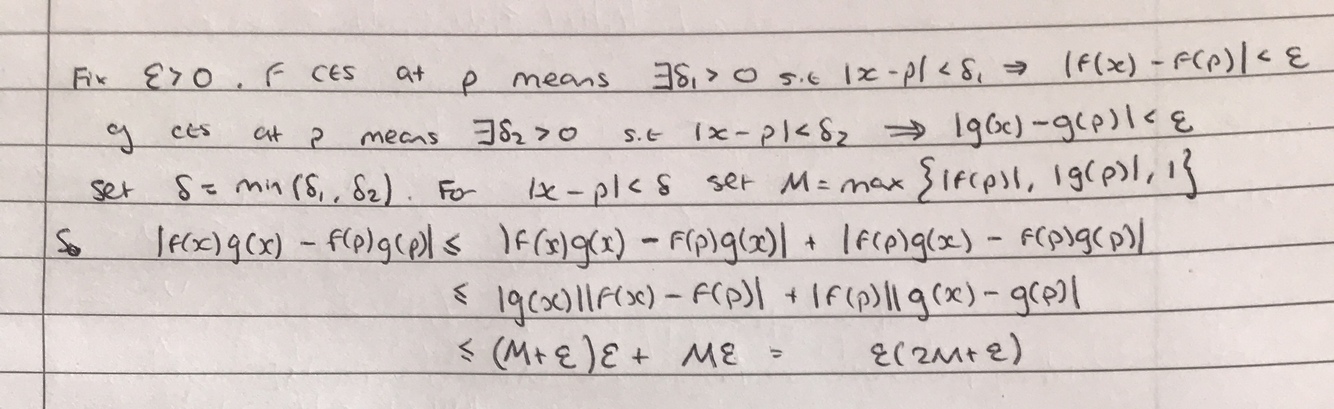 Fix ε>0. f cts at p means ∃δ₁>0 s.t |x-p|<δ₁ ⇒ |f(x) - f(p)|< ε
g cts at p means ∃δ₂>0 s.t |x-p|<δ₂ ⇒ |g(x)-g(p)|< ε
set δ = min(δ₁, δ₂). For |x-p|<δ set M = max{|f(p)|, |g(p)|, 1}
So |f(x)g(x) - f(p)g(p)| ≤ |f(x)g(x) - f(p)g(x)| + |f(p)g(x) - f(p)g(p)|
≤ |g(x)||f(x) - f(p)| + |f(p)||g(x) - g(p)|
≤ (M+ε)ε + Mε = ε(2M+ε)